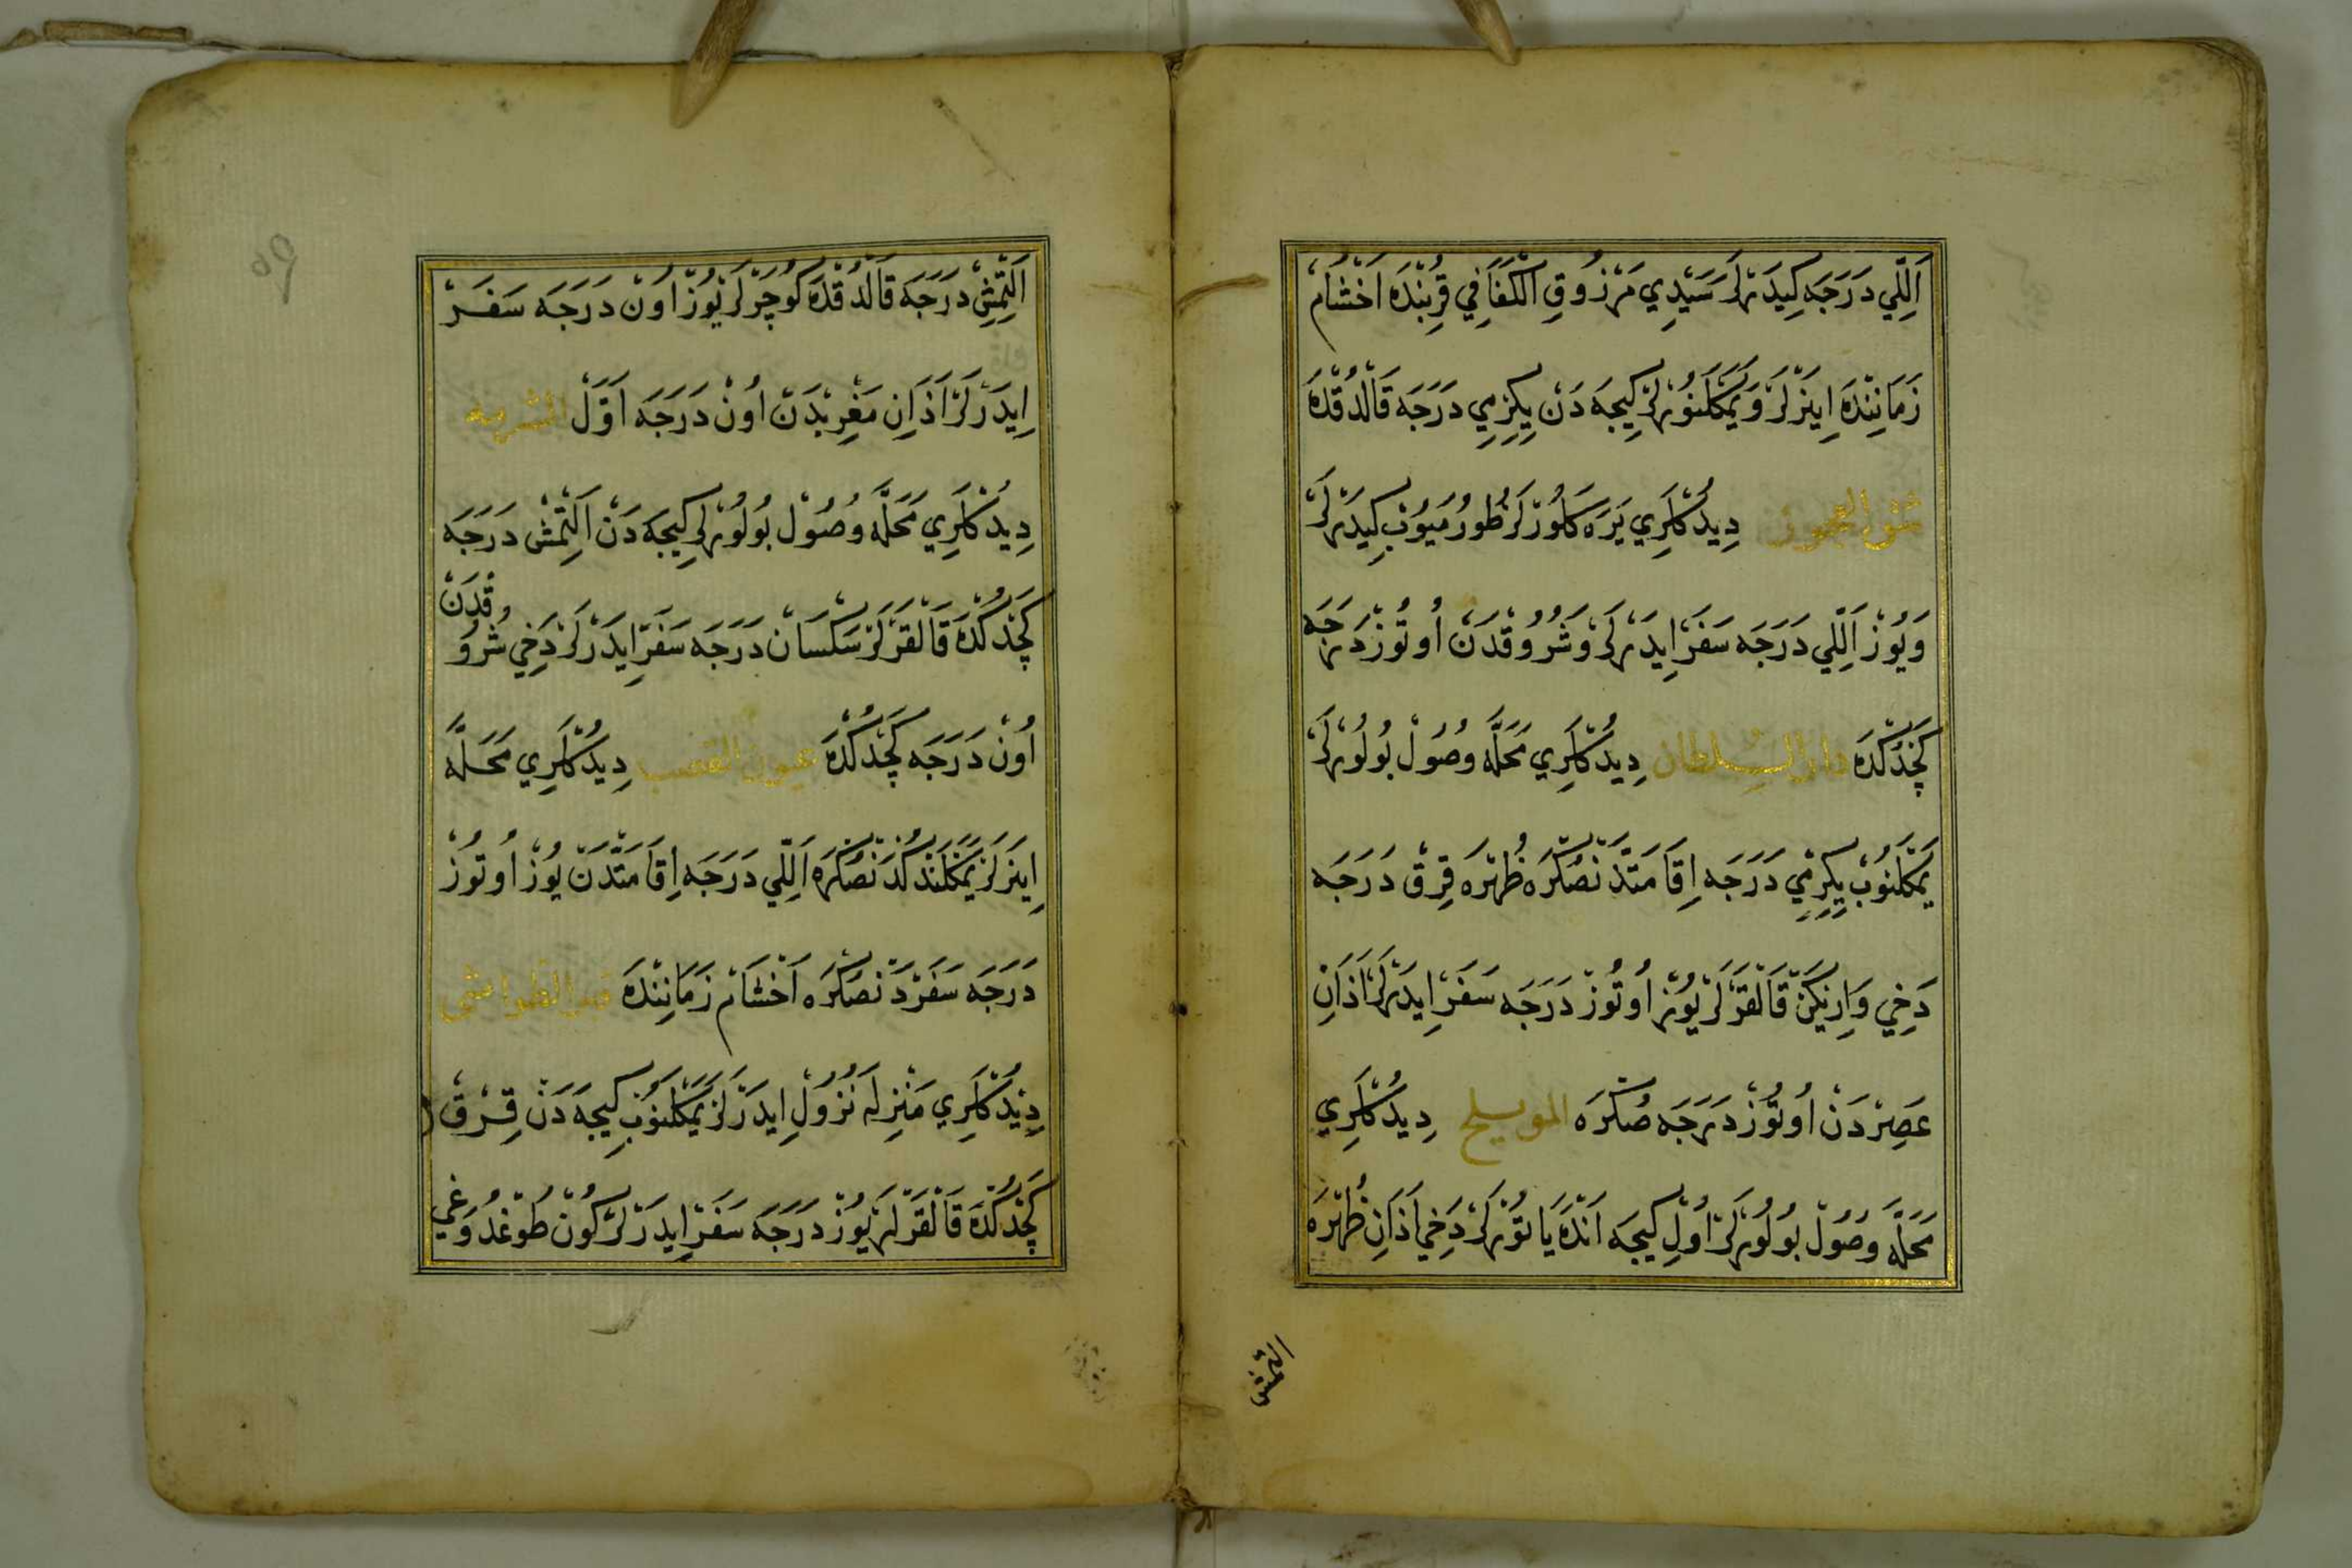 اَللِّي دَرَجَه كِيدَرْلَرْ سَيِّدِي مَرْزُوقِ الْكَفَافِي قُرْبِنْدَه اَخْشَامْ
زَمَانِنْدَه اِينَرْلَرْ وَيَمَكْلَنُورْلَرْ كِيجَه دَنْ يِكِرْمِي دَرَجَه قَالْدُقْدَه
شق العجوز دِيدُكْلَرِي يَرَه كَلُورْلَرْ طُورْمَيُوبْ كِيدَرْلَرْ
وَيُوزْ اَللِّي دَرَجَه سَفَرْ اِيدَرْلَرْ وَشُرُوقْدَنْ اُوتُوزْ دَرَجَه
كَچْدُكْدَه دار السلطان دِيدُكْلَرِي مَحَلَّه وُصُولْ بُولُورْلَرْ
يَمَكْلَنُوبْ يِكِرْمِي دَرَجَه اِقَامَتْدَنْصُكْرَه ظُهْرَه قِرْقْ دَرَجَه
دَخِي وَارِيكَنْ قَالْقَرْلَرْ يُوزْ اُوتُوزْ دَرَجَه سَفَرْ اِيدَرْلَرْ اَذَانِ
عَصِرْدَنْ اُوتُوزْ دَرَجَه صُكْرَه المويلح دِيدُكْلَرِي
مَحَلَّه وُصُولْ بُولُورْلَرْ اُولْ كِيجَه اَنْدَه يَاتُورْلَرْ دَخِي اَذَانِ ظُهْرَه
اَلتِمِش
اَلْتِمِشْ دَرَجَه قَالْدُقْدَه كُوچَرْلَرْ يُوزْ اُونْ دَرَجَه سَفَرْ
اِيدَرْلَرْ اَذَانِ مَغْرِبْدَنْ اُونْ دَرَجَه اَوَّلْ
دِيدُكْلَرِي مَحَلَّه وُصُولْ بُولُورْلَرْ كِيجَه دَنْ اَلْتِمِشْ دَرَجَه
كَچْدُكْدَه قَالْقَرْلَرْ سَكْسَانْ دَرَجَه سَفَرْ اِيدَرْلَرْ دَخِي شُرُوقْدَنْ
اُونْ دَرَجَه كَچْدُكْدَه عيون القصب دِيدُكْلَرِي مَحَلَّه
اِينَرْلَرْ يَمَكْلَنْدُكْدَنْصُكْرَه اَللِّي دَرَجَه اِقَامَتْدَنْ يُوزْ اُوتُوزْ
دَرَجَه سَفَرْدَنْصُكْرَه اَخْشَامْ زَمَانِنْدَه قبر الطواشى
دِيدُكْلَرِي مَنْزِلَه نُزُولْ اِيدَرْلَرْ يَمَكْلَنُوبْ كِيجَه دَنْ قِرْقْ
كَچْدُكْدَه قَالْقَرْلَرْ يُوزْ دَرَجَه سَفَرْ اِيدَرْلَرْ كُونْ طُوغْدُوغِي